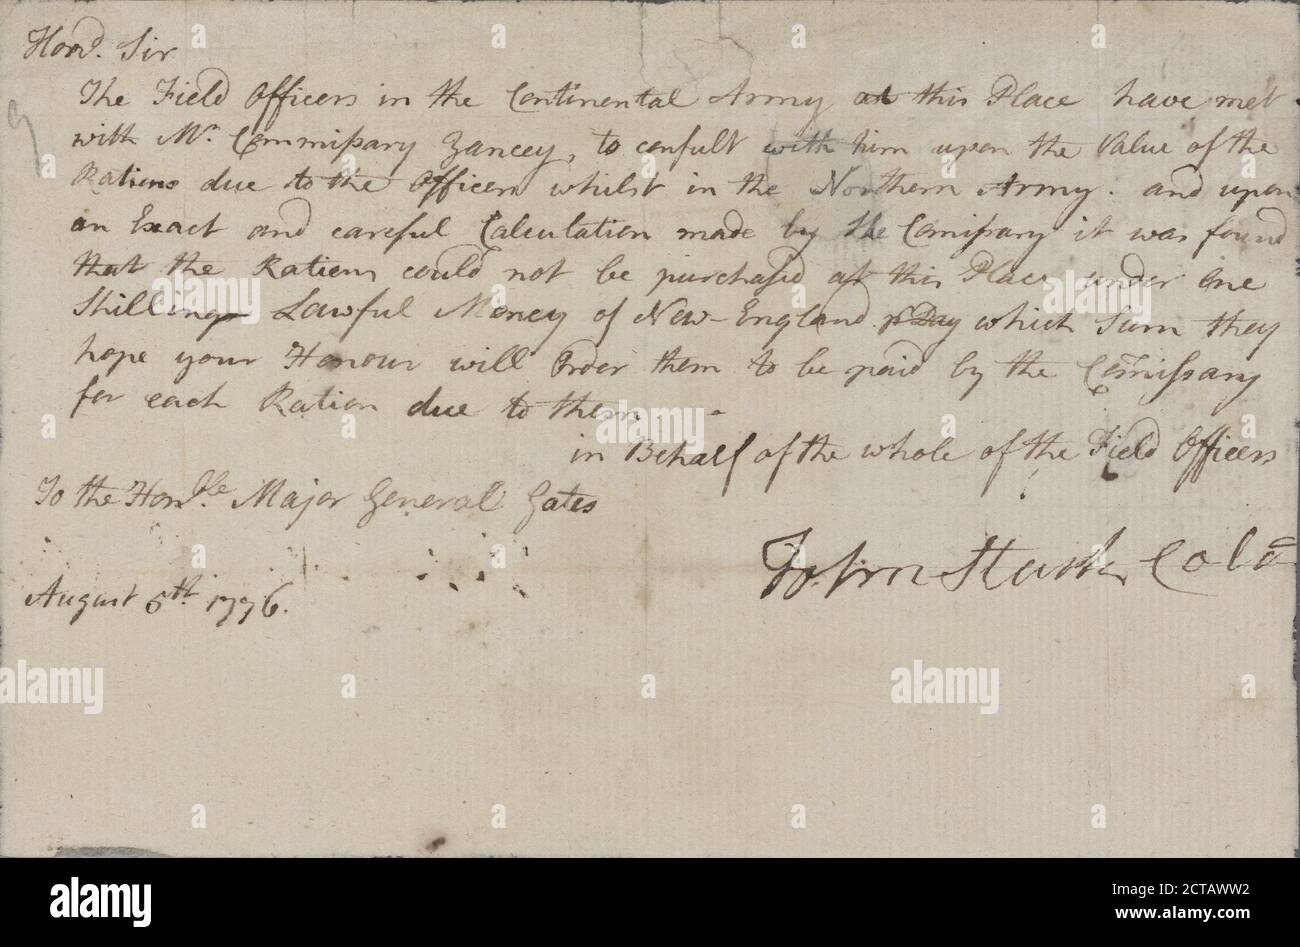 Hond. Sir
The Field Officers in the Continental Army at this Place have met
with Mr. Commissary Yancey, to consult with him upon the Value of the
Rations due to the Officers whilst in the Northern Army. and upon
an Exact and careful Calculation made by the Comissary it was found
that the Rations could not be purchased at this Place under one
Shilling Lawful Money of New-England pr Day which Sum they
hope your Honour will Order them to be paid by the Comissary
for each Ration due to them
in Behalf of the whole of the Field Officers
To the Honble. Major General Gates
John Stark Colo
August 5th. 1776.
alamy
a
Image ID: 2CTAWW2
www.alamy.com